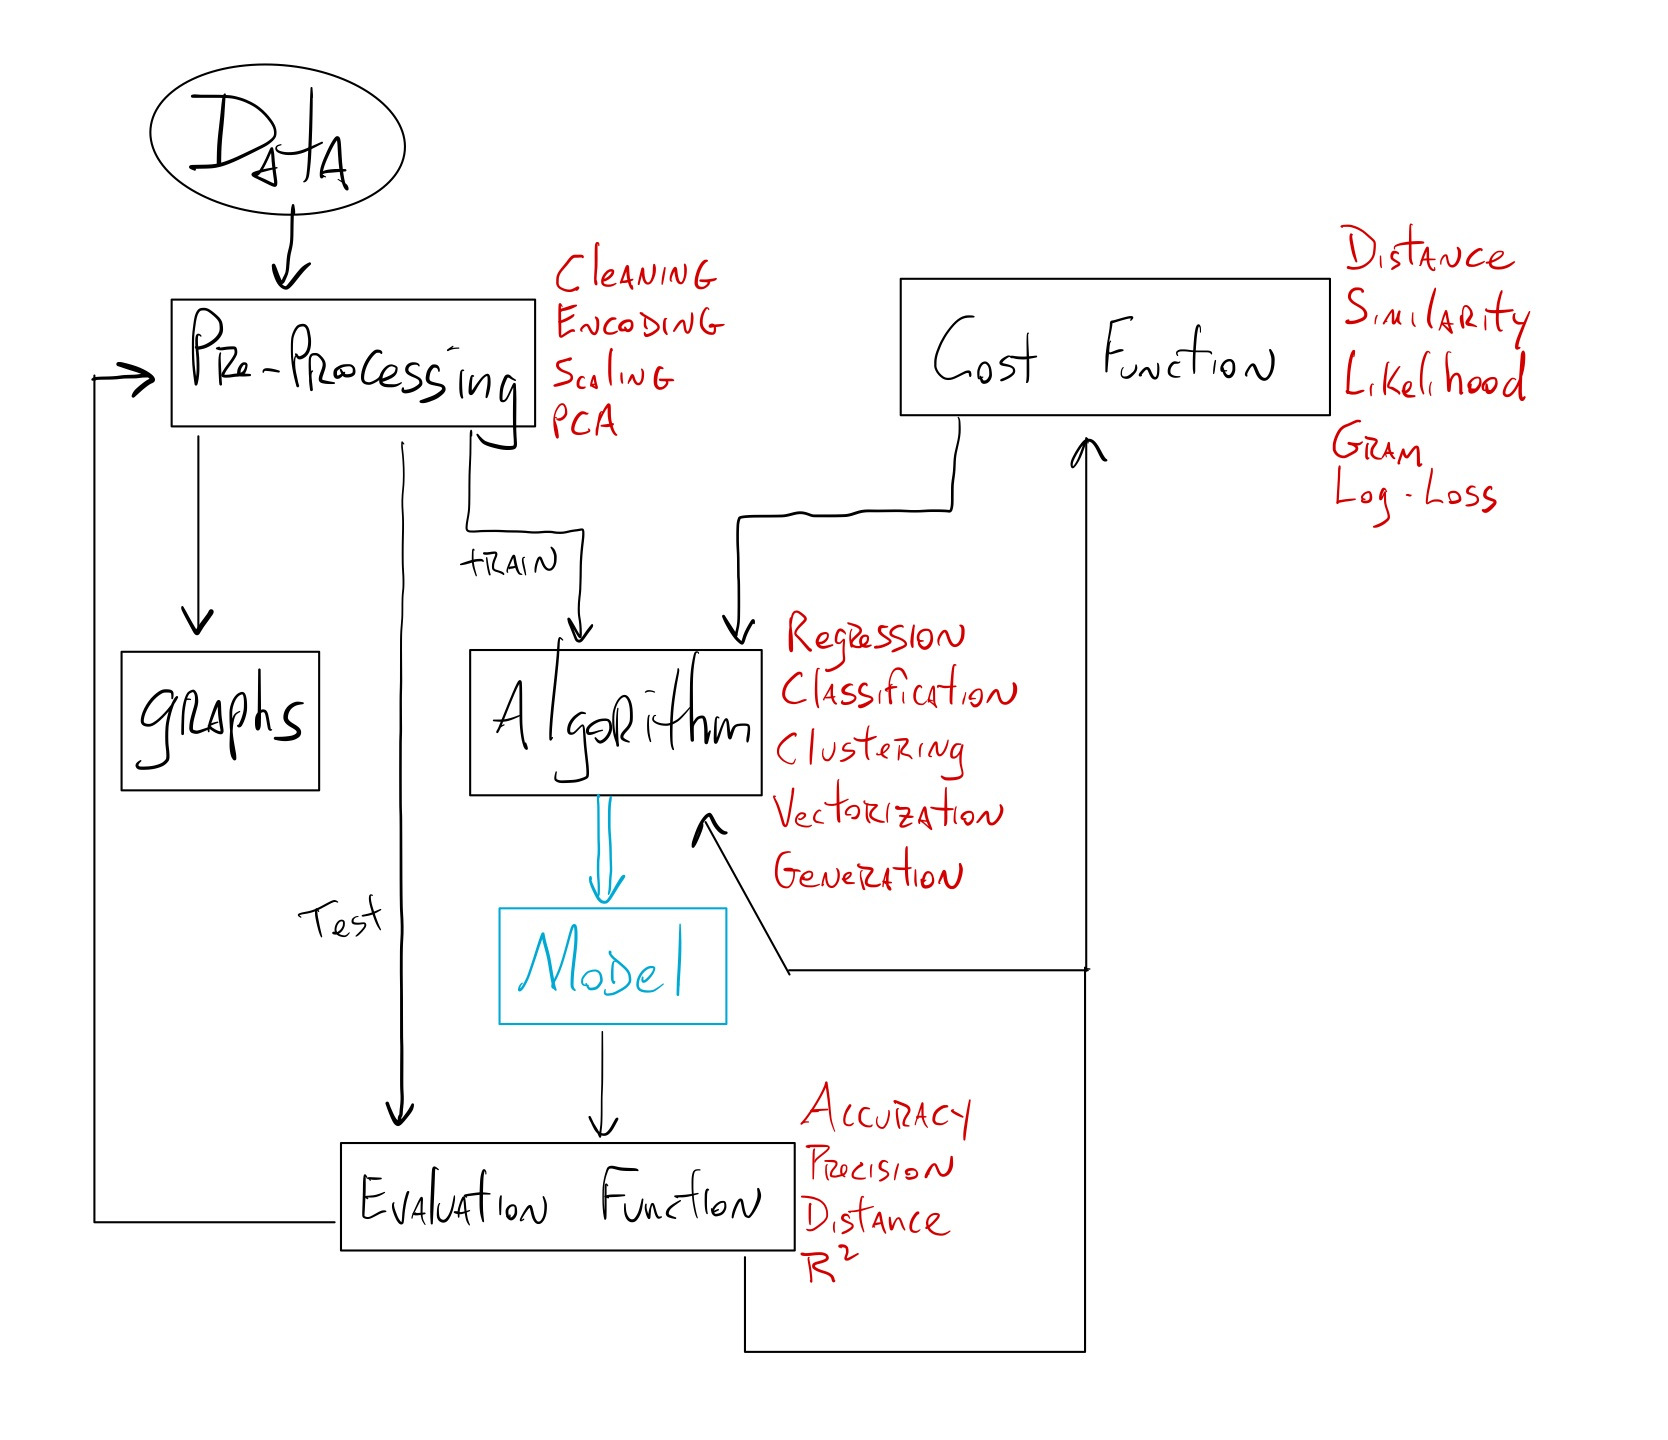 Data
Pre-Processing
Cleaning
Encoding
Scaling
PCA
Cost Function
Distance
Similarity
Likelihood
Gram
Log-Loss
train
graphs
Algorithm
Regression
Classification
Clustering
Vectorization
Generation
Test
Model
Evaluation Function
Accuracy
Precision
Distance
R²